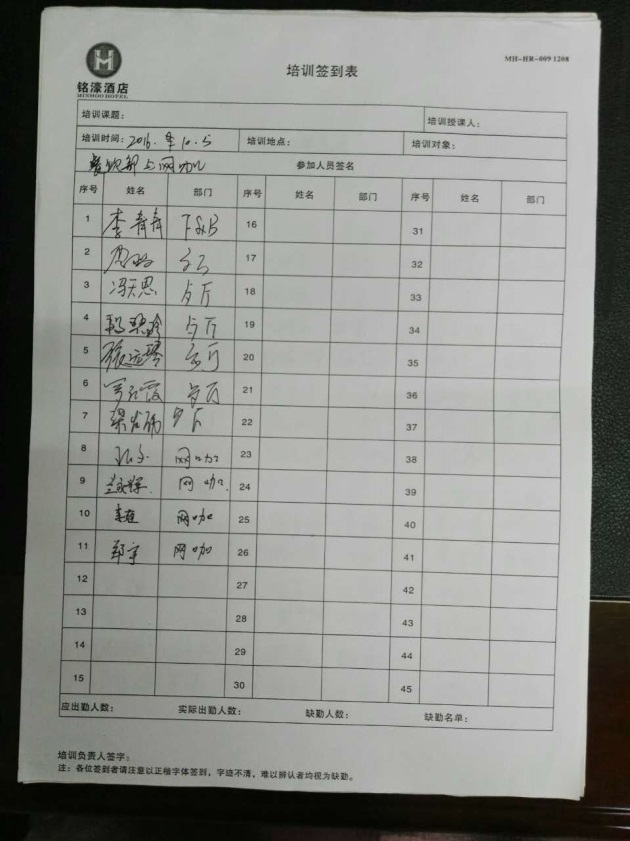 铭濠酒店
MINHOO HOTEL
MH-HR-009 1208
培训签到表
培训课题： 培训授课人：
培训时间：2016.年10.5 培训地点： 培训对象：
餐饮部与网咖 参加人员签名
序号 姓名 部门 序号 姓名 部门 序号 姓名 部门
1 李青青 F&B 16 31
2 17 32
3 冯天恩 18 33
4 19 34
5 20 35
6 21 36
7 22 37
8 孔文 网咖 23 38
9 网咖. 24 39
10 网咖 25 40
11 郑宇 网咖 26 41
12 27 42
13 28 43
14 29 44
15 30 45
应出勤人数： 实际出勤人数： 缺勤人数： 缺勤名单：
培训负责人签字：
注：各位签到者请注意以正楷字体签到，字迹不清，难以辨认者均视为缺勤。